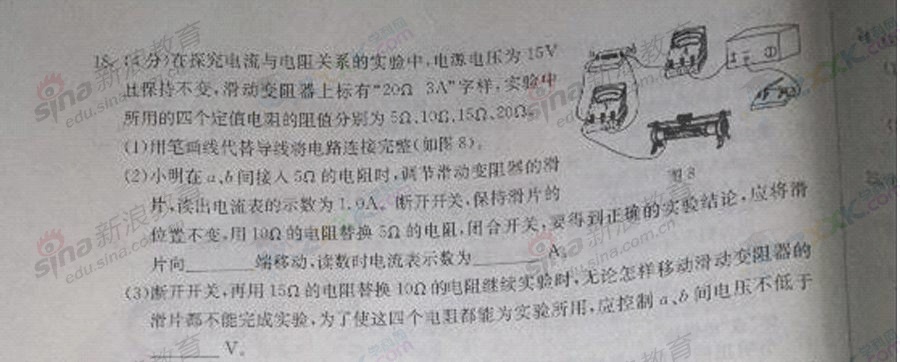 18.(4分)在探究电流与电阻关系的实验中,电源电压为15V
且保持不变,滑动变阻器上标有“20Ω 3A”字样,实验中
所用的四个定值电阻的阻值分别为5Ω、10Ω、15Ω、20Ω。
(1)用笔画线代替导线将电路连接完整(如图8)。
(2)小明在a、b间接入5Ω的电阻时,调节滑动变阻器的滑
片,读出电流表的示数为1.0A。断开开关,保持滑片的
位置不变,用10Ω的电阻替换5Ω的电阻,闭合开关,要得到正确的实验结论,应将滑
片向______端移动,读数时电流表示数为______A。
(3)断开开关,再用15Ω的电阻替换10Ω的电阻继续实验时,无论怎样移动滑动变阻器的
滑片都不能完成实验,为了使这四个电阻都能为实验所用,应控制a、b间电压不低于
______V。
图8
sina新浪教育
edu.sina.com.cn